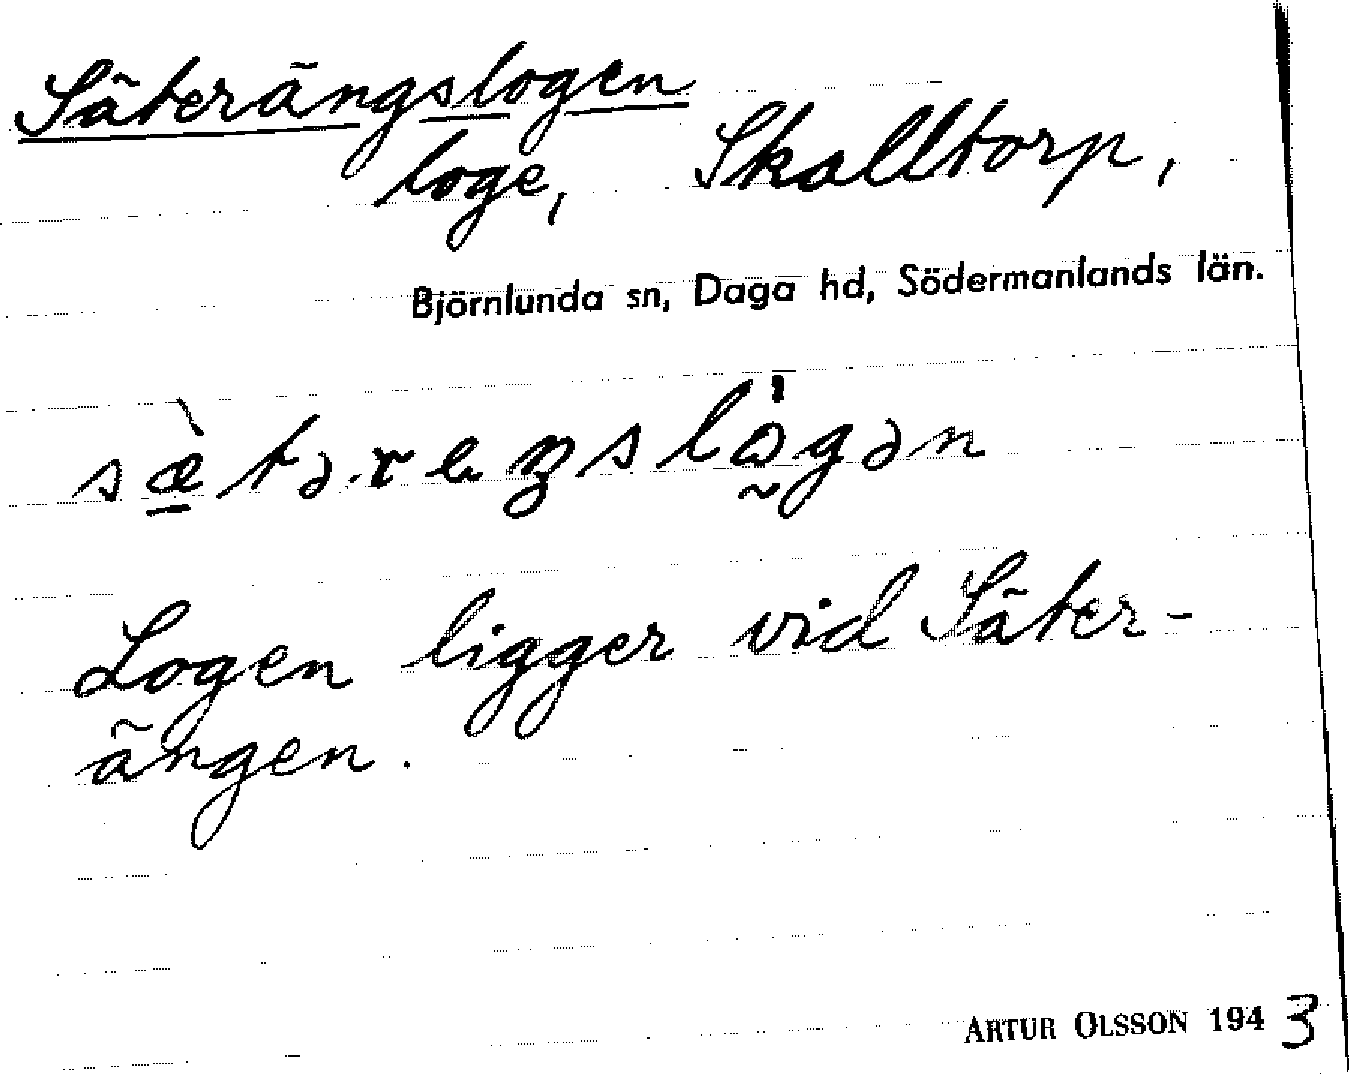 Säterängslogen
loge, Skalltorp,
Björnlunda sn, Daga hd, Södermanlands län.
sæ̀təreŋslògən
Logen ligger vid Säter-
ängen.
ARTUR OLSSON 1943